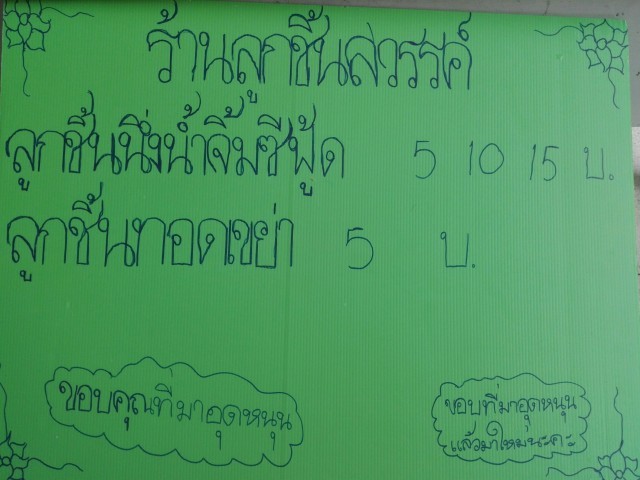 ร้านลูกชิ้นสวรรค์
ลูกชิ้นนึ่งน้ำจิ้มซีฟู้ด 5 10 15 บ.
ลูกชิ้นทอดเขย่า 5 บ.
ขอบคุณที่มาอุดหนุน
ขอบที่มาอุดหนุน
แล้วมาใหมนะคะ